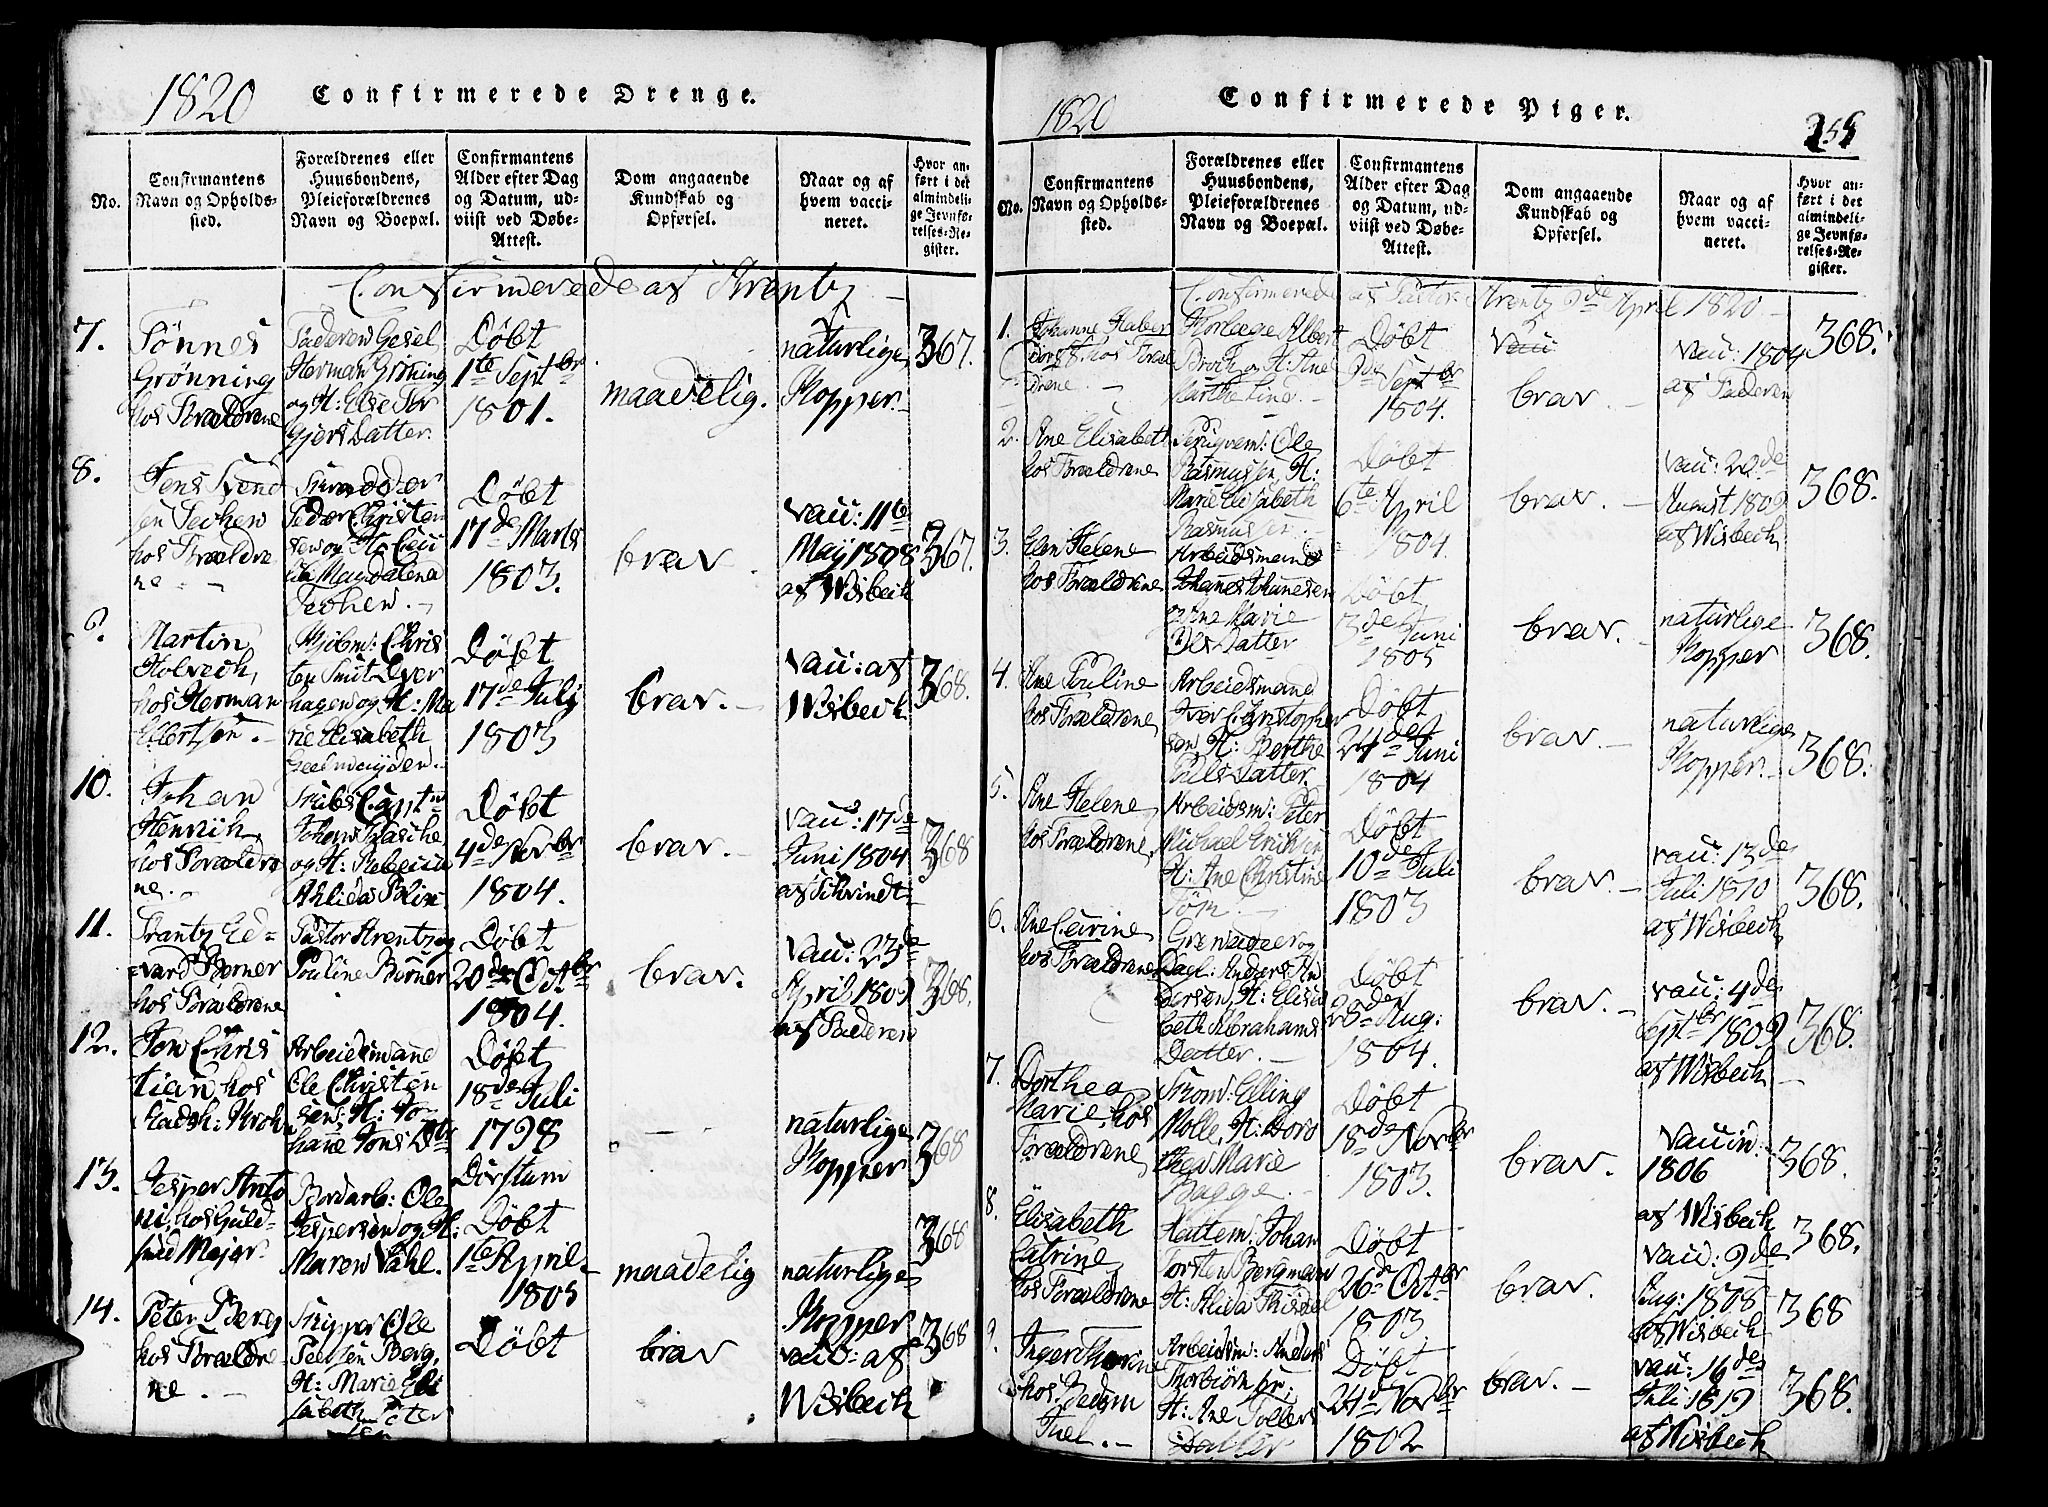 1820 Confirmerede Drenge.
No.
Confirmantens
Navn og Opholds-
sted.
Forældrenes eller
Huusbondens,
Pleieforældrenes
Navn og Boepæl.
Confirmantens
Alder efter Dag
og Datum, ud-
viist ved Døbe-
Attest.
Dom angaaende
Kundskab og
Opførsel.
Naar og af
hvem vacci-
neret.
Hvor an-
ført i det
almindeli-
ge Jevnfø-
relses-Re-
gister.
Confirmerede af Arentz
7.
Tønnes
Grønning
hos Forældrene
Faderen Gesel
Herman Grøning
og H: Else Tor
gjers Datter.
Døbt
1te Septbr
1801.
maadelig.
naturlige
Kopper.
367.
8.
Jens Svend
sen Techen
hos Forældre
ne
Peder Christen
sen og H: Ceci
lia Magdalena
Techen.
Døbt
17de Marts
1803.
brav
vacc: 11te
Maij 1808
af Wisbech
367.
9.
Martin
Holvech,
hos Herman
Ellertsen.
Kjøbm: Chris
ten Smit Over
hagen og H: Ma
rie Elisabeth
Døbt
17de Julij
1803
brav.
vacc: af
Wisbech
368.
10.
Johan
Henrich,
hos Forældre
ne.
Skibs Captn
Johan Rasche
og H: Rebecca
Døbt
4de Novbr
1804.
brav.
vacc: 17de
Juni 1804
af Schvindt
368
11.
Frantz Ed-
vard Børner
hos Forældrene
Pastor Arentz og
Pouline Børner
Døbt
20de Octbr
1804.
brav.
vacc: 23de
April 1809
af Faderen
368.
12.
Jon Chris
tian, hos
Krohn
Arbeidsmand
Ole Christen
sen, H: Jo
hane Jons Dtr
Døbt
18de Juli
1798
naturlige
Kopper
368
13.
Jesper Anto
ni, hos Guld-
smed Mejer.
Bordarb: Ole
Jespersen og H:
Maren Vahl.
Døbt
1te April
1805
maadelig
naturlige
Kopper
368
14.
Peter Berg
hos Forældre
ne.
Skipper Ole
Peersen Berg,
H: Marie Eli
sabeth Peter
Døbt
brav
vacc: af
Wisbech
368
1820 Confirmerede Piger.
No.
Confirmantens
Navn og Opholds-
sted.
Forældrenes eller
Huusbondens,
Pleieforældrenes
Navn og Boepæl.
Confirmantens
Alder efter Dag
og Datum, ud-
viist ved Døbe-
Attest.
Dom angaaende
Kundskab og
Opførsel.
Naar og af
hvem vacci-
neret.
Hvor an-
ført i det
almindeli-
ge Jevnfø-
relses-Re-
gister.
Confirmerede af Pastor Arentz 9de April 1820
1.
Johanne
hos Foræl
drene
Albert
Broch og H: Ane
Marthe Lind.
Døbt
Septbr
1804.
brav.
vacc: 1804
af Faderen
368.
2.
Ane Elisabeth
hos Forældrene
Ole
Rasmussen, H:
Marie Elisabeth
Rasmussen
Døbt
6te April
1804.
brav.
vacc: 22de
August 1809
af Wisbech
368.
3.
Elen Helene
hos Forældrene
Arbeidsmand
Johannes Johannesen
og Ane Marie
Datter
Døbt
3de Juni
1805
brav.
naturlige
Kopper
368.
4.
Ane Pouline
hos Forældrene
Arbeidsmand
Iver Christopher
sen, H: Berthe
Pauls Datter.
Døbt
24de Juni
1804
brav.
naturlige
Kopper.
368.
5.
Ane Helene
hos Forældrene
Arbeidsm: Peter
Michael Erichsen
H: Ane Christine
Døbt
10de Juli
1803
brav.
vacc: 13de
Juli 1810
af Wisbech
368.
6.
Ane Catrine
hos Forældrene
Grenadeer og
Anders An
dersen, H: Elisa
beth Abrahams
Datter.
Døbt
28de Aug:
1804.
brav.
vacc: 4de
Septbr 1809
af Wisbech
368.
7.
Dorthea
Marie, hos
Forældrene
Skom: Elling
Molle, H: Doro
thea Marie
Bagge.
Døbt
18de Novbr
1803.
brav.
1806
af Wisbech
368.
8.
Elisabeth
Catrine
hos Forældrene
Hattem: Johan
Torsten Bergman
H: Alida
Døbt
26de Octbr
1803
brav.
vacc: 9de
Aug: 1808
af Wisbech
368.
368
9.
Inger Thorine
hos Bedsm
Juel.
Arbeidsm: Anders
Thorbiørnsen
H: Ane Tollers
Datter
Døbt
24de Novbr
1802
brav.
vacc: 16de
Juli 1819
af Wisbech
368.